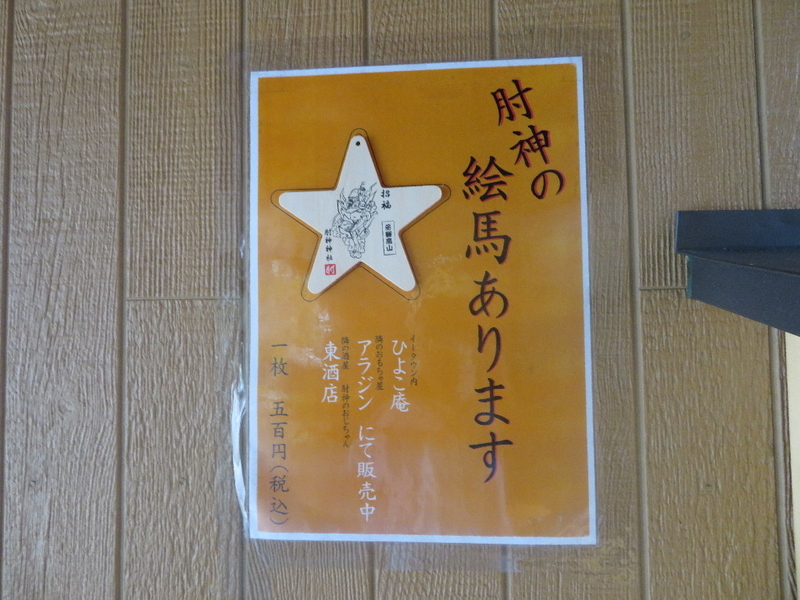 肘神の
絵馬あります
招福
飛騨高山
肘神神社
イータウン内
ひよこ庵
隣のおもちゃ屋
アラジン にて販売中
隣の酒屋 肘神のおじちゃん
東酒店
一枚 五百円(税込)